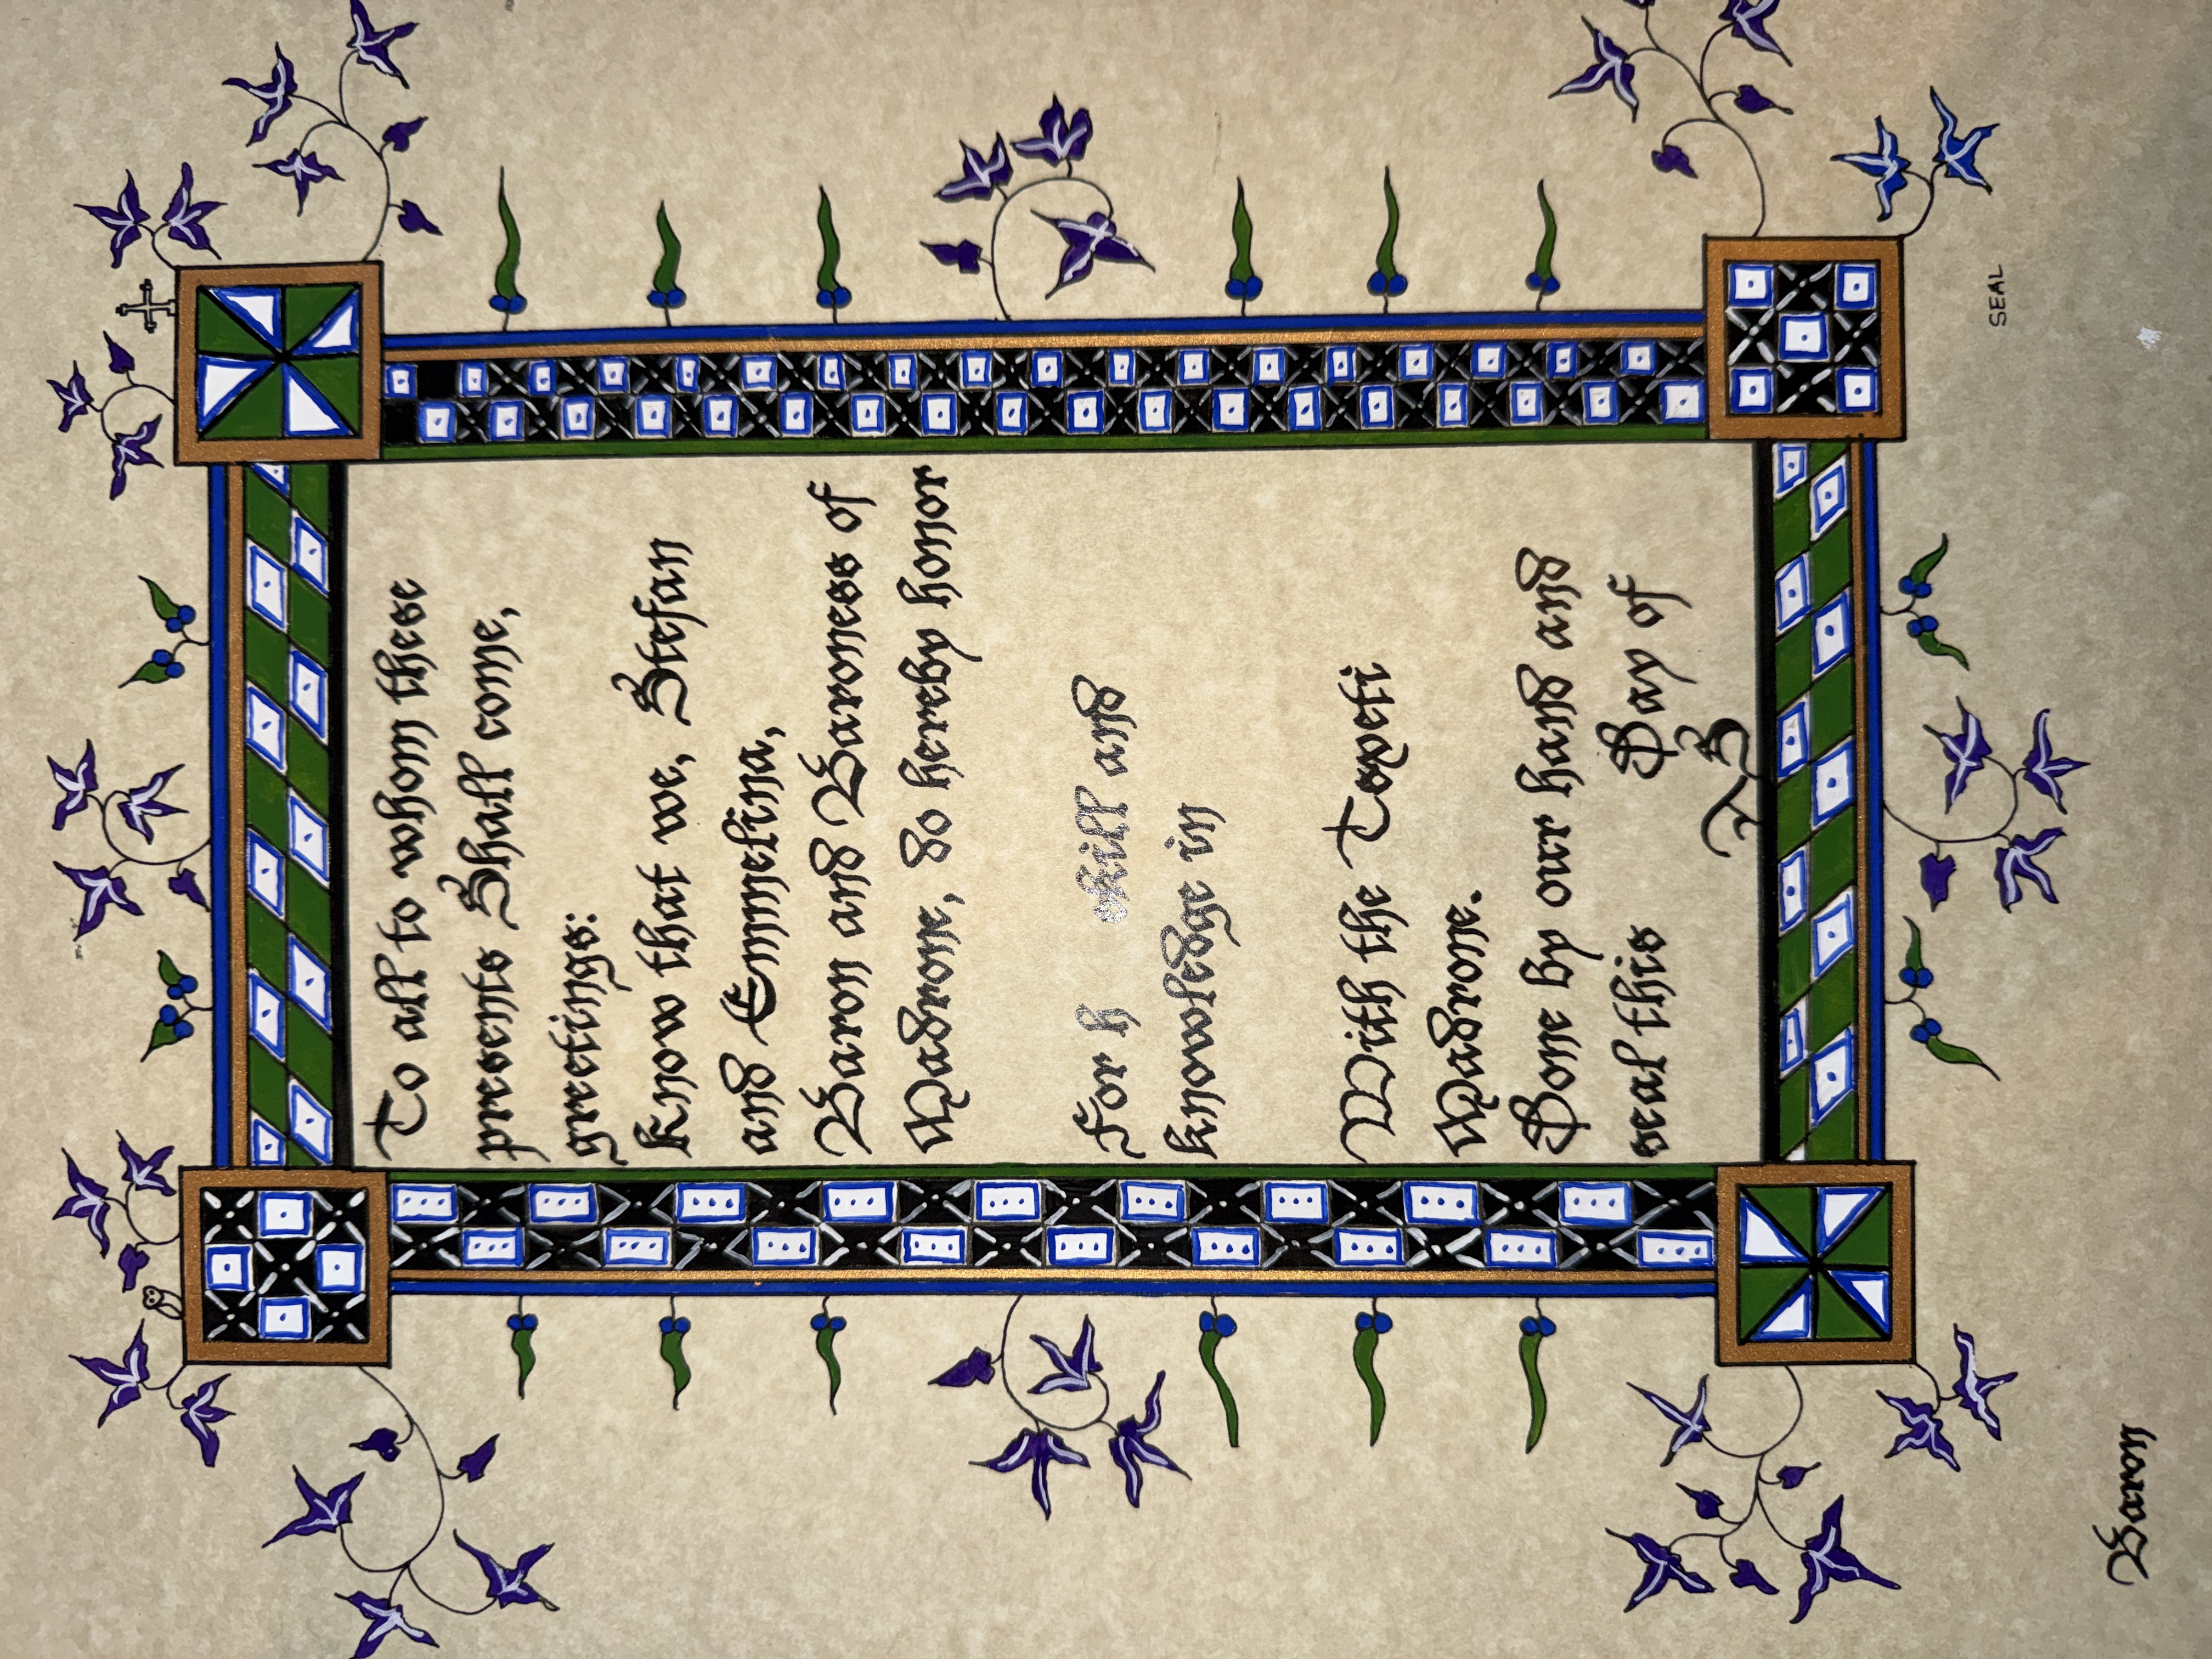 To all to whom these
presents Shall come,
greetings:
Know that we, Stefan
and Emmelina,
Baron and Baroness of
Madrone, do hereby honor
For h skill and
knowledge in
With the Topeti
Madrone.
Done by our hand and
seal this Day of
AS
SEAL
Baron